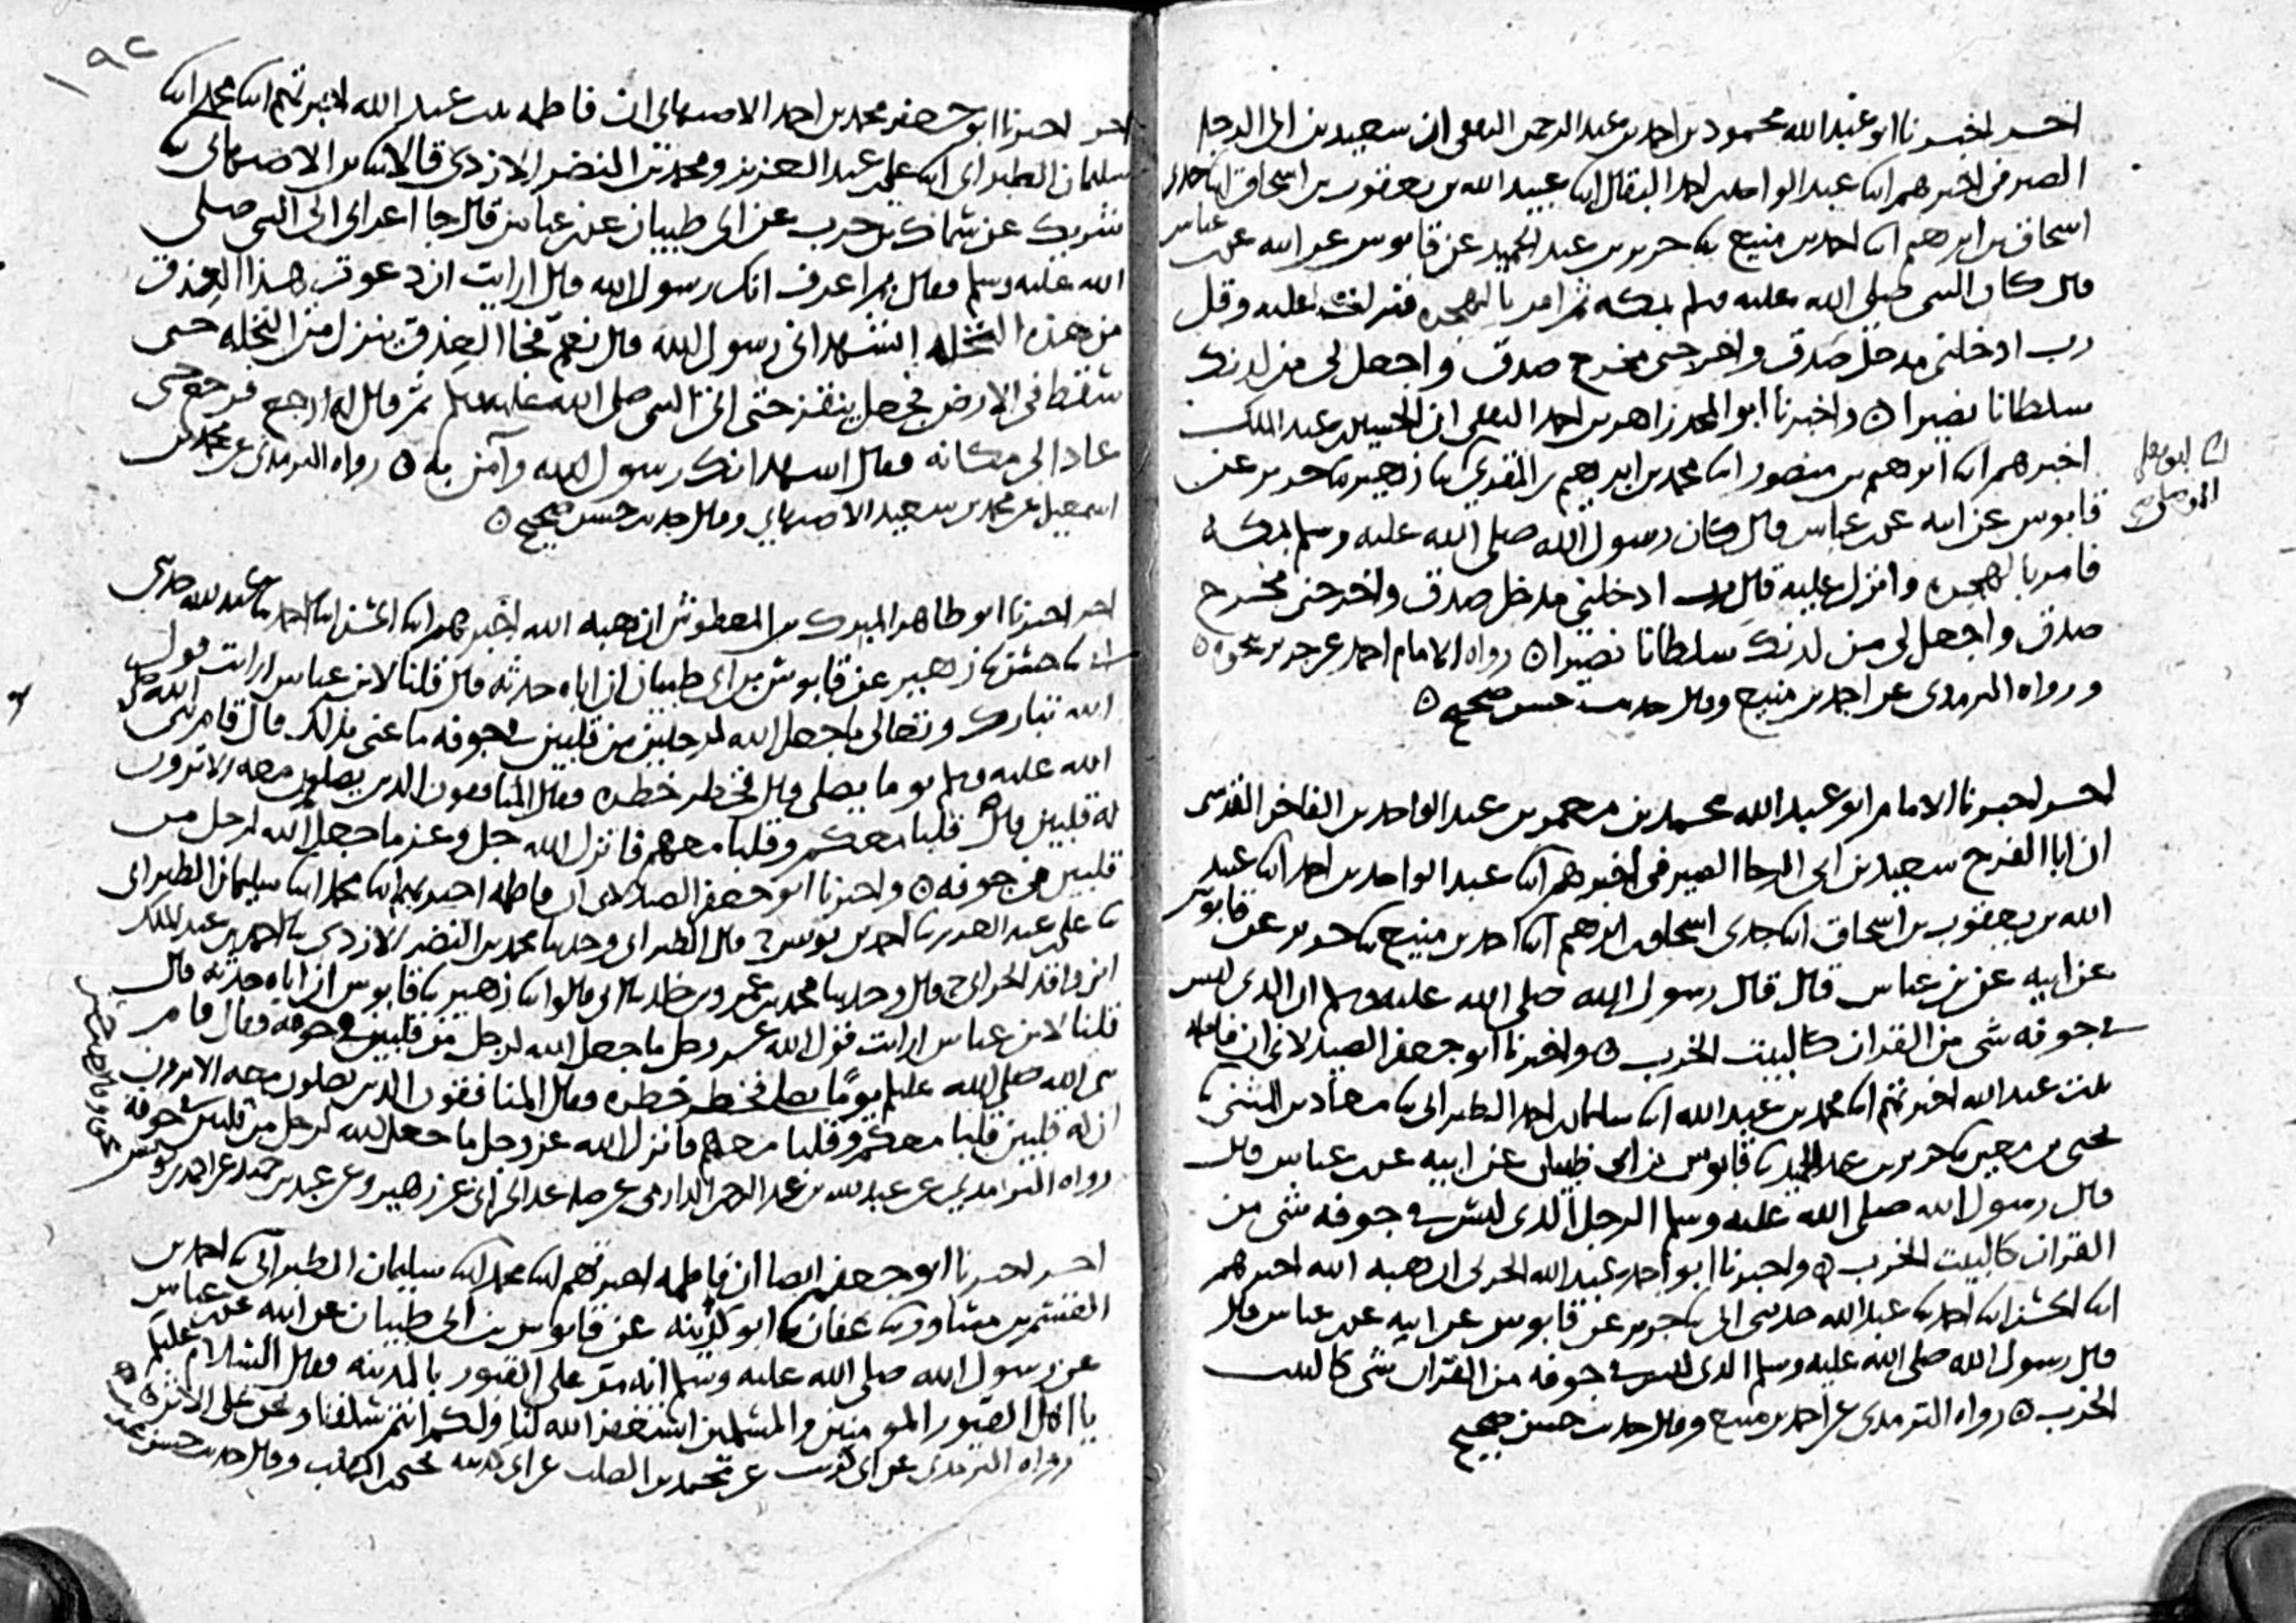 اخر اخبرنا ابو عبد الله محمود بن احمد بن عبد الرحمن الثقفي ان سعيد بن ابي الرجا
الصيرفي اخبرهم ابنا عبد الواحد بن احمد البقال ابنا عبيد الله بن يعقوب بن اسحاق ابنا جدي
اسحاق بن ابرهيم ابنا احمد بن منيع ثنا جرير بن عبد الحميد عن قابوس عن ابيه عن ابن عباس
قال كان النبي صلى الله عليه وسلم بمكه ثم امر بالهجره فنزلت عليه وقل
رب ادخلني مدخل صدق واخرجني مخرج صدق واجعل لي من لدنك
سلطانا نصيرا ۞ واخبرنا ابو المجد زاهر بن احمد الثقفي ان الحسين بن عبد الملك
اخبرهم ابنا ابرهيم بن منصور ابنا محمد بن ابرهيم بن المقري ابنا ابو يعلى الموصلي ثنا زهير ثنا جرير عن
قابوس عن ابيه عن ابن عباس قال كان رسول الله صلى الله عليه وسلم بمكه
فامر بالهجره وانزل عليه قل رب ادخلني مدخل صدق واخرجني مخرج
صدق واجعل لي من لدنك سلطانا نصيرا ۞ رواه الامام احمد عن جرير بنحوه ۞
ورواه الترمذي عن احمد بن منيع وقال حديث حسن صحيح ۞
اخر اخبرنا الامام ابو عبد الله محمد بن معمر بن عبد الواحد بن الفاخر القرشي
ان ابا الفرج سعيد بن ابي الرجا الصيرفي اخبرهم ابنا عبد الواحد بن احمد ابنا عبيد
الله بن يعقوب بن اسحاق ابنا جدي اسحاق بن ابرهيم ابنا احمد بن منيع ثنا جرير عن قابوس
عن ابيه عن بن عباس قال قال رسول الله صلى الله عليه وسلم ان الذي ليس
في جوفه شي من القران كالبيت الخرب ۞ واخبرنا ابو جعفر الصيدلاني ان فاطمه
بنت عبد الله اخبرتهم ابنا محمد بن عبد الله ابنا سليمان بن احمد الطبراني ثنا معاذ بن المثنى ثنا
يحيى بن معين ثنا جرير بن عبد الحميد ثنا قابوس بن ابي ظبيان عن ابيه عن ابن عباس قال
قال رسول الله صلى الله عليه وسلم الرجل الذي ليس في جوفه شي من
القران كالبيت الخرب ۞ واخبرنا ابو احمد عبد الله الحربي ان هبه الله اخبرهم
ابنا الحسن ابنا احمد ثنا عبد الله حدثني ابي ثنا جرير عن قابوس عن ابيه عن ابن عباس قال
قال رسول الله صلى الله عليه وسلم الذي ليس في جوفه من القران شي كالبيت
الخرب ۞ رواه الترمذي عن احمد بن منيع وقال حديث حسن صحيح
١٩٢
اخر اخبرنا ابو جعفر محمد بن احمد الاصبهاني ان فاطمه بنت عبد الله اخبرتهم ابنا محمد ابنا
سليمان الطبراني ابنا علي بن عبد العزيز ومحمد بن النضر الازدي قالا ثنا بن الاصبهاني ثنا
شريك عن سماك بن حرب عن ابي ظبيان عن بن عباس قال جا اعرابي الى النبي صلى
الله عليه وسلم فقال بم اعرف انك رسول الله قال ارايت ان دعوت هذا العذق
من هذه النخله اتشهد اني رسول الله قال نعم فجا العذق ينزل من النخله حتى
سقط في الارض فجعل ينقز حتى اتى النبي صلى الله عليه وسلم ثم قال له ارجع فرجع حتى
عاد الى مكانه فقال اشهد انك رسول الله وآمن به ۞ رواه الترمذي عن محمد بن
اسمعيل عن محمد بن سعيد الاصبهاني وقال حديث حسن صحيح ۞
اخر اخبرنا ابو طاهر المبرك بن المعطوش ان هبه الله اخبرهم ابنا الحسن ابنا احمد ثنا عبد الله حدثني
ابي ثنا حسن ثنا زهير عن قابوس بن ابي ظبيان ان اباه حدثه قال قلنا لابن عباس ارايت قول
الله تبارك وتعالى ما جعل الله لرجل من قلبين في جوفه ما عنى بذلك قال قام نبي الله صلى
الله عليه وسلم يوما يصلي قال فخطر خطره فقال المنافقون الذين يصلون معه الا ترون
له قلبين قال قلبا معكم وقلبا معهم فانزل الله جل وعز ما جعل الله لرجل من
قلبين في جوفه ۞ واخبرنا ابو جعفر الصيدلاني ان فاطمه اخبرتهم ابنا محمد ابنا سليمان الطبراني
ثنا علي بن عبد العزيز ثنا احمد بن يونس ح قال الطبراني وحدثنا محمد بن النضر الازدي ثنا احمد بن عبد الملك
ابن واقد الحراني ح قال وحدثنا محمد بن عمرو بن خالد ثنا ابي قالوا ابنا زهير ثنا قابوس ان اباه حدثه قال
قلنا لابن عباس ارايت قول الله عز وجل ما جعل الله لرجل من قلبين في جوفه فقال قام
نبي الله صلى الله عليه وسلم يومًا يصلي فخطر خطره فقال المنافقون الذين يصلون معه الا ترون
ان له قلبين قلبا معكم وقلبا معهم فانزل الله عز وجل ما جعل الله لرجل من قلبين في جوفه
رواه الترمذي عن عبد الله بن عبد الرحمن الدارمي عن صاعد الحراني عن زهير وعن عبد بن حميد عن احمد بن يونس
اخر اخبرنا ابو جعفر ايضا ان فاطمه اخبرتهم ابنا محمد ابنا سليمان الطبراني ثنا احمد بن
القسم بن مساور ثنا عفان ثنا ابو كدينه عن قابوس بن ابي ظبيان عن ابيه عن ابن عباس
عن رسول الله صلى الله عليه وسلم انه مر على القبور بالمدينه فقال السلام عليكم
يا اهل القبور المومنين والمسلمين استغفر الله لنا ولكم انتم سلفنا ونحن على الاثر ۞
رواه الترمذي عن ابي كريب عن محمد بن الصلت عن ابي كدينه يحيى بن المهلب وقال حديث حسن غريب ۞